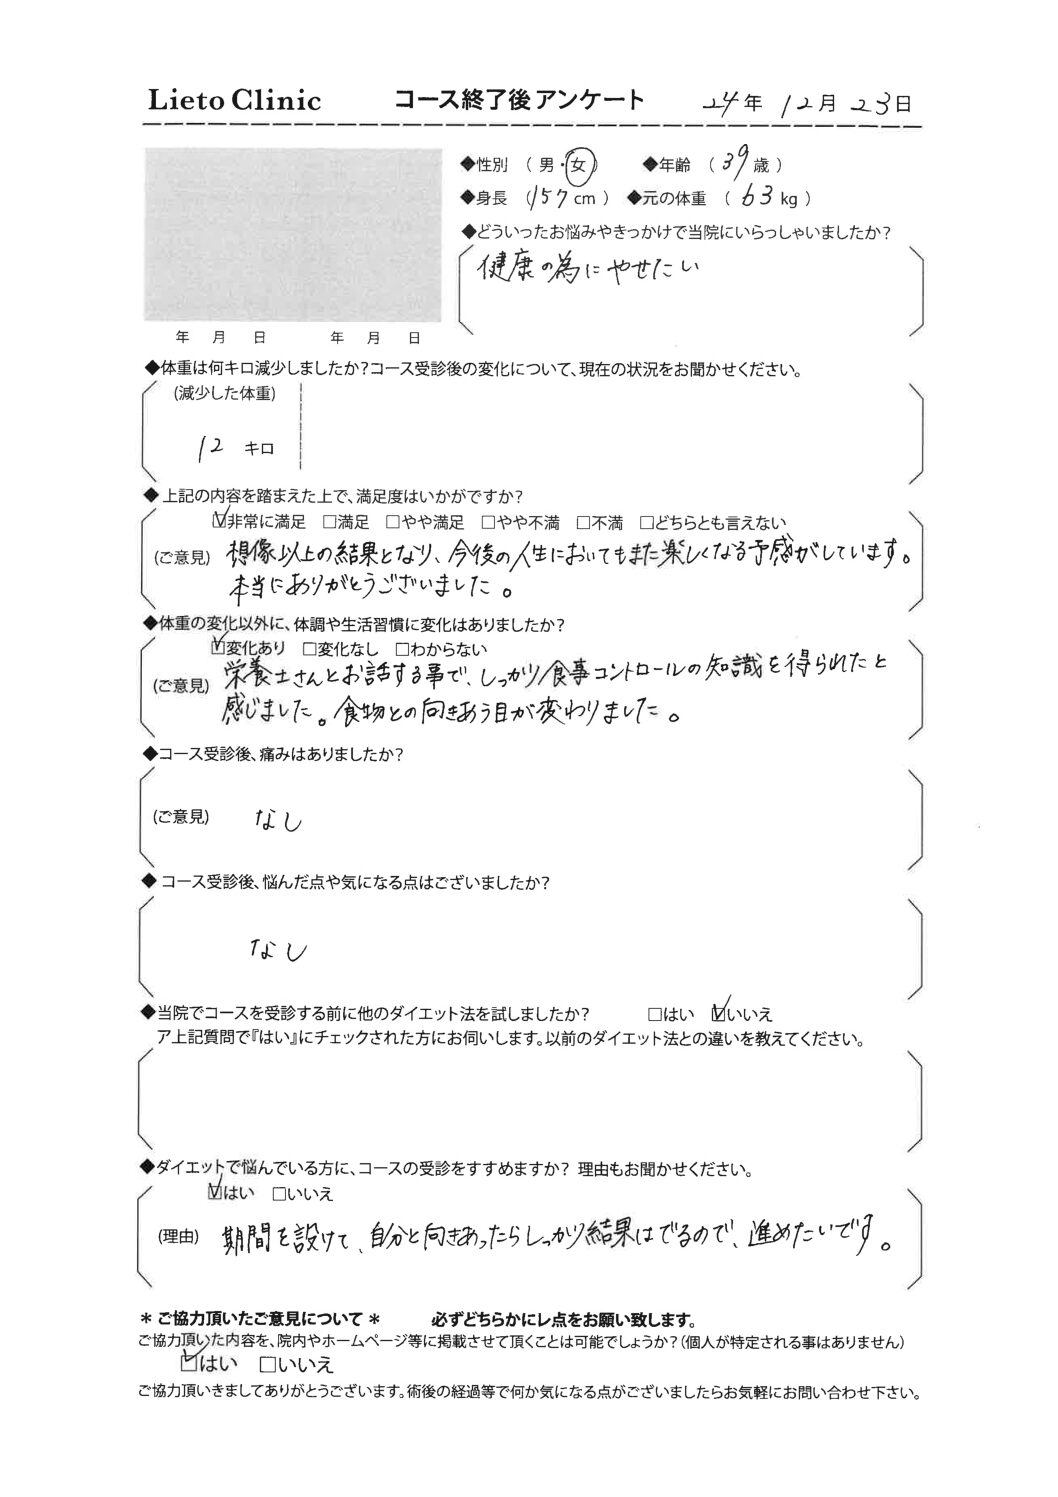 Lieto Clinic コース終了後アンケート 24年 12月 23日
◆性別 （ 男・女 ） ◆年齢 （ 39 歳 ）
◆身長 （ 157 cm ） ◆元の体重 （ 63 kg ）
◆どういったお悩みやきっかけで当院にいらっしゃいましたか？
健康の為にやせたい
年 月 日 年 月 日
◆体重は何キロ減少しましたか？コース受診後の変化について、現在の状況をお聞かせください。
(減少した体重)
12 キロ
◆ 上記の内容を踏まえた上で、満足度はいかがですか？
☑非常に満足 □満足 □やや満足 □やや不満 □不満 □どちらとも言えない
(ご意見) 想像以上の結果となり、今後の人生においてもまた楽しくなる予感がしています。
本当にありがとうございました。
◆体重の変化以外に、体調や生活習慣に変化はありましたか？
☑変化あり □変化なし □わからない
(ご意見) 栄養士さんとお話する事で、しっかり食事コントロールの知識を得られたと
感じました。食物との向きあう目が変わりました。
◆コース受診後、痛みはありましたか？
(ご意見) なし
◆ コース受診後、悩んだ点や気になる点はございましたか？
なし
◆当院でコースを受診する前に他のダイエット法を試しましたか？ □はい ☑いいえ
ア上記質問で『はい』にチェックされた方にお伺いします。以前のダイエット法との違いを教えてください。
◆ダイエットで悩んでいる方に、コースの受診をすすめますか？ 理由もお聞かせください。
☑はい □いいえ
(理由) 期間を設けて、自分と向きあったらしっかり結果はでるので、進めたいです。
＊ ご協力頂いたご意見について ＊ 必ずどちらかにレ点をお願い致します。
ご協力頂いた内容を、院内やホームページ等に掲載させて頂くことは可能でしょうか？（個人が特定される事はありません）
☑はい □いいえ
ご協力頂きましてありがとうございます。術後の経過等で何か気になる点がございましたらお気軽にお問い合わせ下さい。